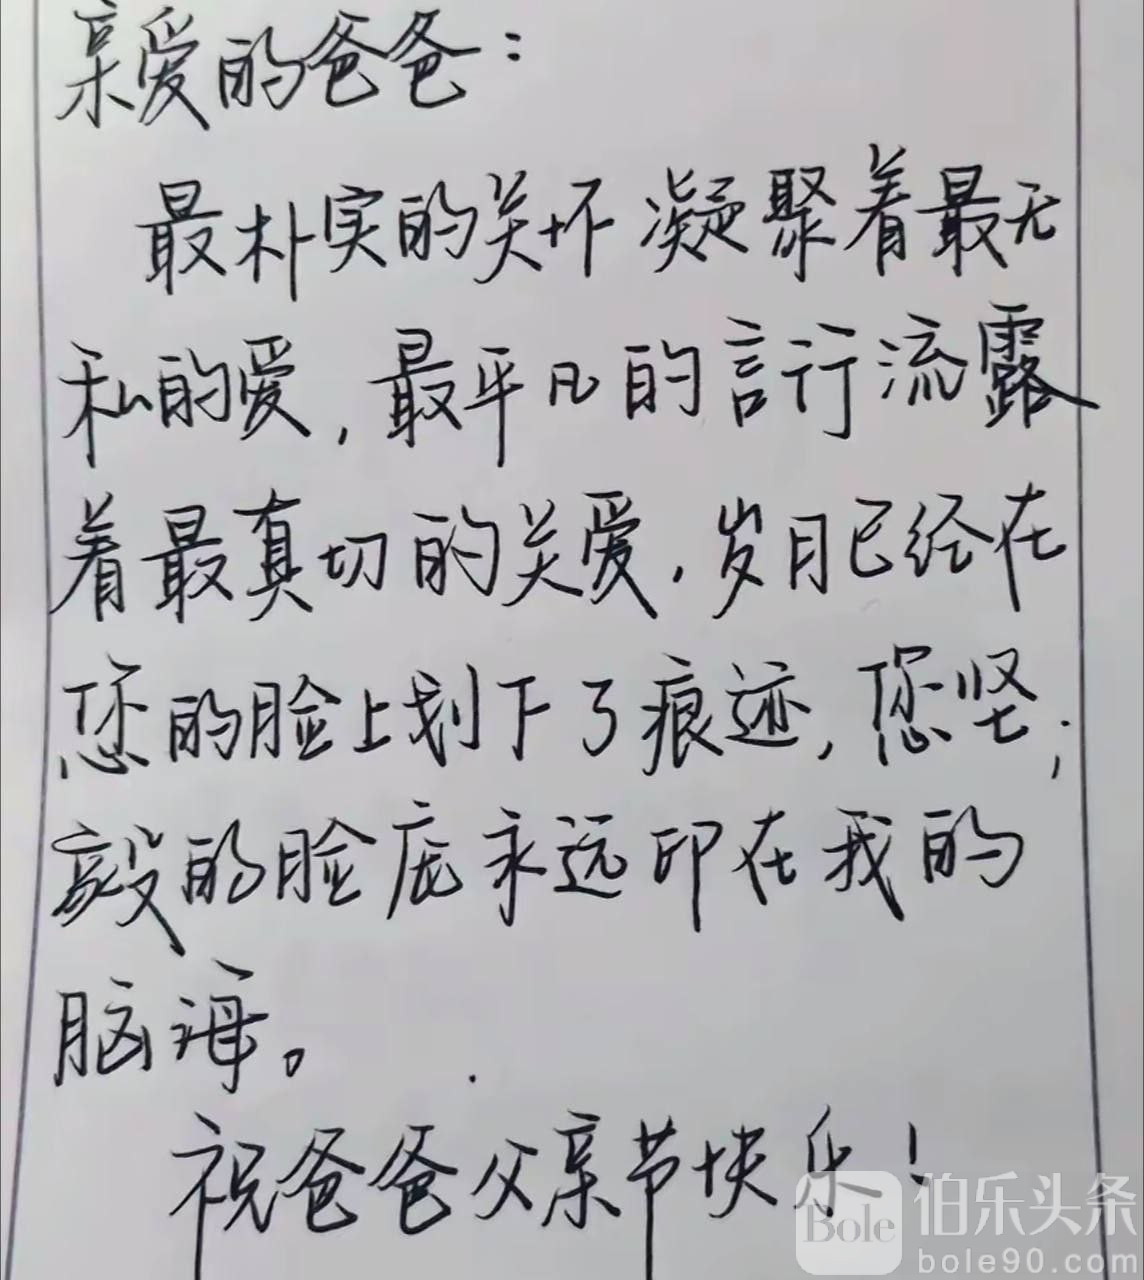 亲爱的爸爸：
最朴实的关怀凝聚着最无
私的爱，最平凡的言行流露
着最真切的关爱，岁月已经在
您的脸上划下了痕迹，您坚
毅的脸庞永远印在我的
脑海。
祝爸爸父亲节快乐！
Bole 伯乐头条
bole90.com